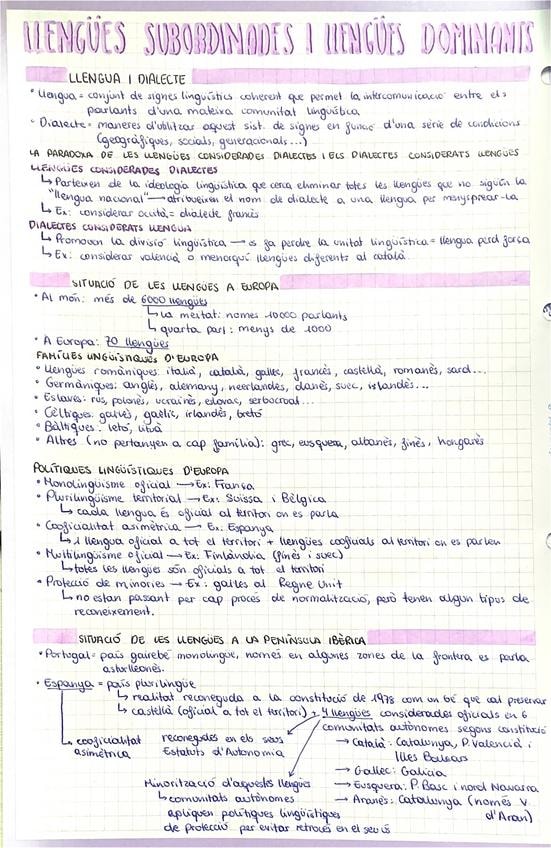 LLENGÜES SUBORDINADES I LLENGÜES DOMINANTS
LLENGUA I DIALECTE
• Llengua = conjunt de signes lingüístics coherent que permet la intercomunicació entre els
parlants d'una mateixa comunitat lingüística
• Dialecte = maneres d'utilitzar aquest sist. de signes en funció d'una sèrie de condicions
(geogràfiques, socials, generacionals...)
LA PARADOXA DE LES LLENGÜES CONSIDERADES DIALECTES I ELS DIALECTES CONSIDERATS LLENGÜES
LLENGÜES CONSIDERADES DIALECTES
↳ Parteixen de la ideologia lingüística que cerca eliminar totes les llengües que no siguin la
"llengua nacional" → atribueixen el nom de dialecte a una llengua per menysprear-la
↳ Ex: considerar occità = dialecte francès
DIALECTES CONSIDERATS LLENGUA
↳ Promoven la divisió lingüística → es fa perdre la unitat lingüística = llengua perd força
↳ Ex: considerar valencià o menorquí llengües diferents al català
SITUACIÓ DE LES LLENGÜES A EUROPA
• Al món: més de 6000 llengües
↳ la meitat: només 10000 parlants
↳ quarta part: menys de 1000
• A Europa: 70 llengües
FAMÍLIES LINGÜÍSTIQUES D'EUROPA
• Llengües romàniques: italià, català, gallec, francès, castellà, romanès, sard...
• Germàniques: anglès, alemany, neerlandès, danès, suec, islandès...
• Eslaves: rus, polonès, ucraïnès, eslovac, serbocroat...
• Cèltiques: gal·lès, gaèlic, irlandès, bretó
• Bàltiques: letó, lituà
• Altres (no pertanyen a cap família): grec, eusquera, albanès, finès, hongarès
POLÍTIQUES LINGÜÍSTIQUES D'EUROPA
• Monolingüisme oficial → Ex: França
• Plurilingüisme territorial → Ex: Suïssa i Bèlgica
↳ cada llengua és oficial al territori on es parla
• Cooficialitat asimètrica → Ex: Espanya
↳ 1 llengua oficial a tot el territori + llengües cooficials al territori on es parlen
• Multilingüisme oficial → Ex: Finlàndia (finès i suec)
↳ totes les llengües són oficials a tot el territori
• Protecció de minories → Ex: gal·lès al Regne Unit
↳ no estan passant per cap procés de normalització, però tenen algun tipus de
reconeixement.
SITUACIÓ DE LES LLENGÜES A LA PENÍNSULA IBÈRICA
• Portugal = país gairebé monolingüe, només en algunes zones de la frontera es parla
asturlleonès.
• Espanya = país plurilingüe
↳ realitat reconeguda a la constitució de 1978 com un bé que cal preservar
↳ castellà (oficial a tot el territori) + 4 llengües considerades oficials en 6
comunitats autònomes segons constitució
↳ cooficialitat asimètrica
reconegudes en els seus
Estatuts d'Autonomia
→ Català: Catalunya, P. Valencià i
Illes Balears
→ Gallec: Galícia
→ Eusquera: P. Basc i nord Navarra
→ Aranès: Catalunya (només V.
d'Aran)
Minorització d'aquestes llengües
↳ comunitats autònomes
apliquen polítiques lingüístiques
de protecció per evitar retrocés en el seu ús